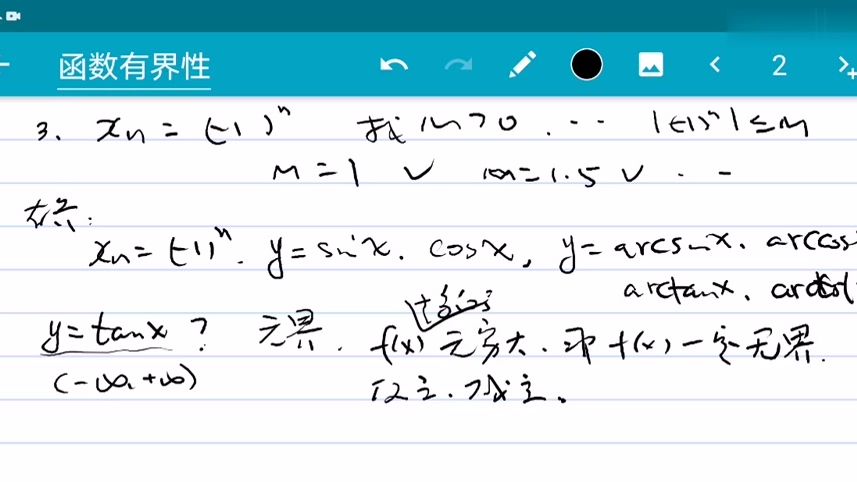 函数有界性
2
3. xn = (-1)^n 找 M>0 . … |(-1)^n| ≤ M
M = 1 ✓ M=1.5 ✓ . –
有界:
xn = (-1)^n. y=sinx. cosx, y= arcsinx. arccos
arctanx.
y=tanx ? 无界. f(x) 无穷大. 则 f(x) 一定无界.
(-∞, +∞) 反之. 不成立.